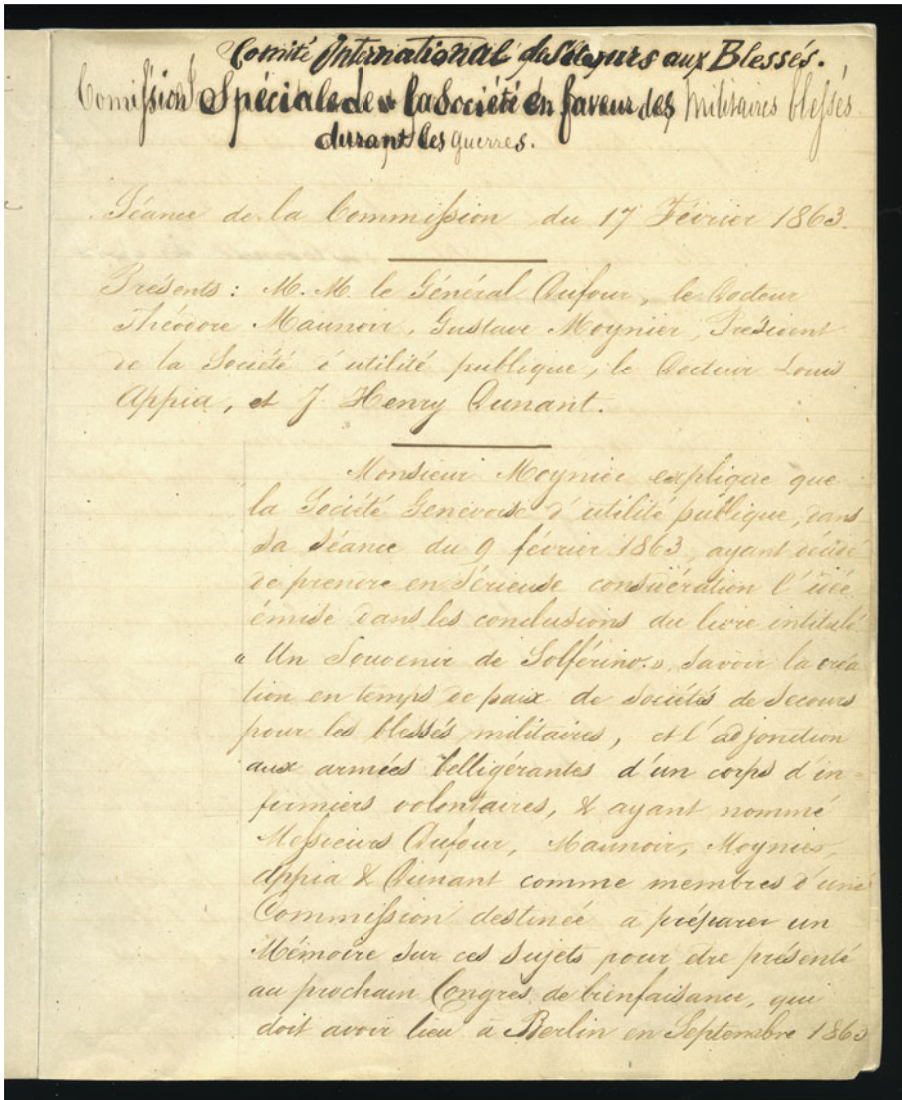 Comité International de Secours aux Blessés.
Commission Spéciale de la Société en faveur des militaires blessés
durant les guerres.
Séance de la Commission du 17 Février 1863.
Présents : M. M. le Général Dufour, le Docteur
Théodore Maunoir, Gustave Moynier, Président
de la Société d'utilité publique, le Docteur Louis
Appia, et J. Henry Dunant.
Monsieur Moynier explique que
la Société Genevoise d'utilité publique, dans
sa séance du 9 février 1863, ayant décidé
de prendre en sérieuse considération l'idée
émise dans les conclusions du livre intitulé
« Un Souvenir de Solférino », savoir la créa
tion en temps de paix de Sociétés de Secours
pour les blessés militaires, et l'adjonction
aux armées belligérantes d'un corps d'in-
firmiers volontaires, & ayant nommé
Messieurs Dufour, Maunoir, Moynier,
Appia & Dunant comme membres d'une
Commission destinée a préparer un
Mémoire sur ces sujets pour être présenté
au prochain Congrès de bienfaisance, qui
doit avoir lieu à Berlin en Septembre 1863